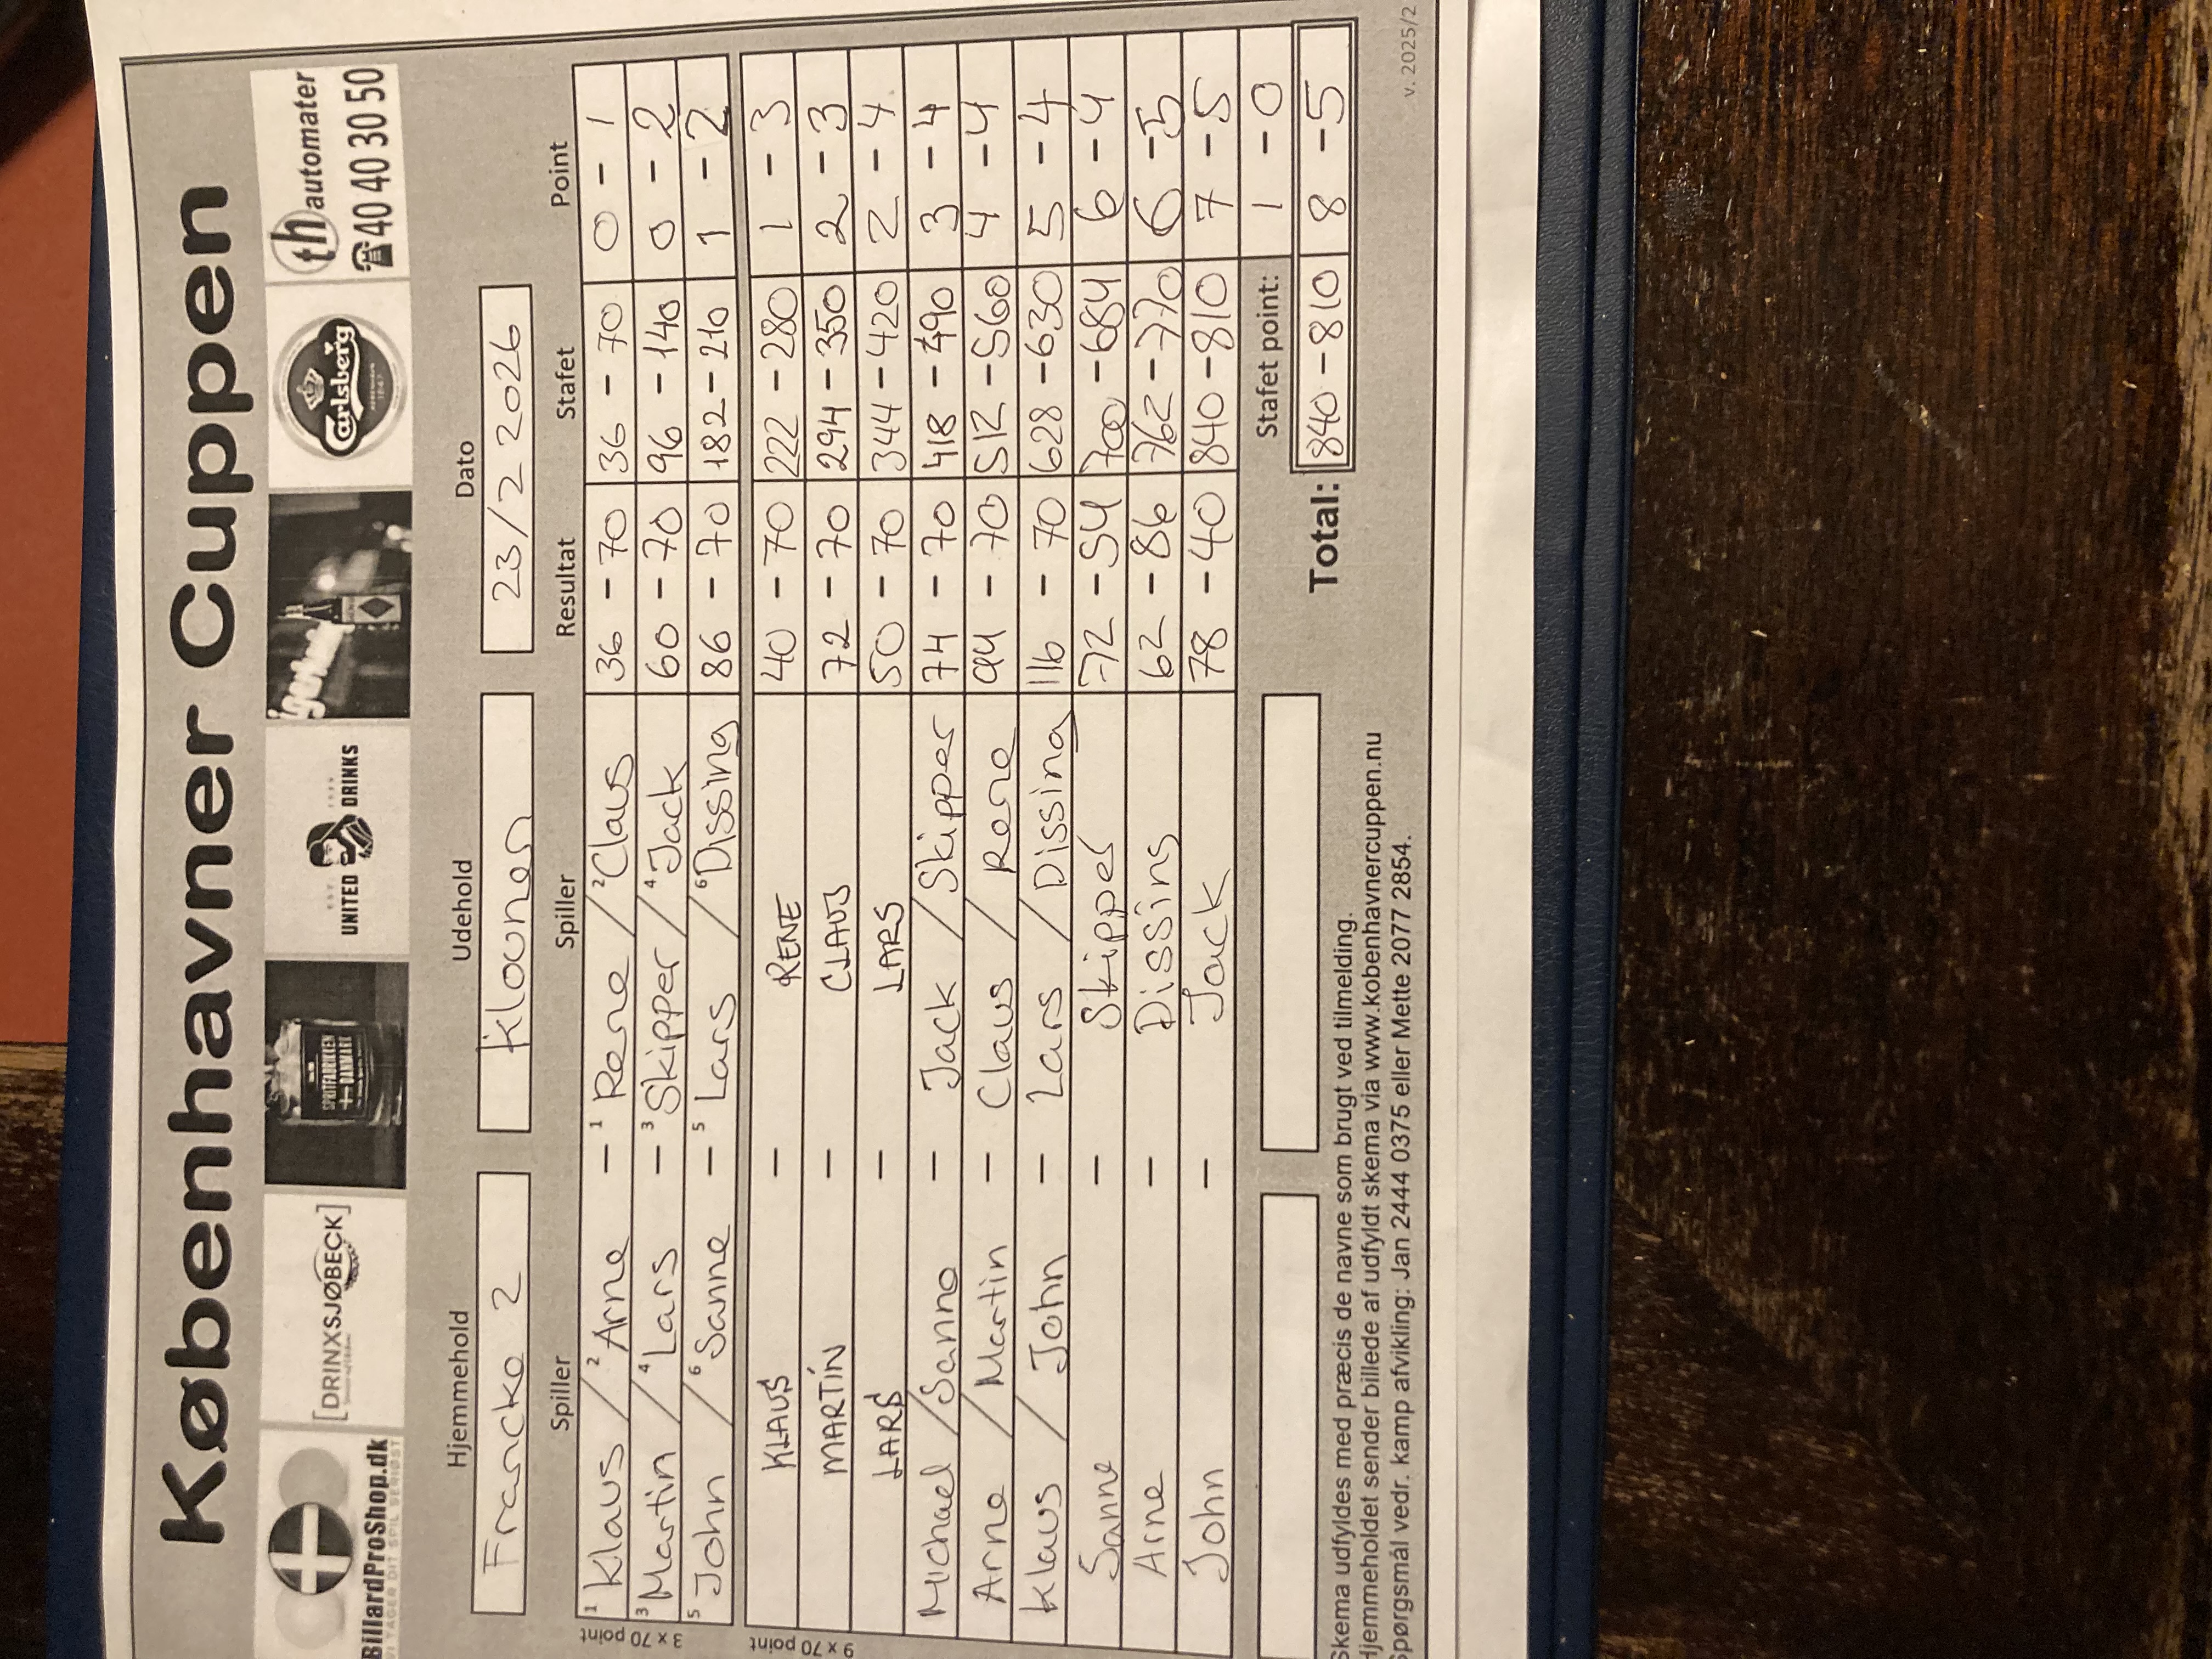 Københavner Cuppen
BillardProShop.dk
VI TAGER DIT SPIL SERIØST
[DRINXSJØBECK]
SPRITFABRIKKEN
DANMARK
UNITED DRINKS
Carlsberg
th automater
☎40 40 30 50
Hjemmehold Udehold Dato
Francko 2 Klounen 23/2 2026
Spiller Spiller Resultat Stafet Point
3 x 70 point
1 Klaus / 2 Arne - 1 Rene / 2 Claus 36 - 70 36 - 70 0 - 1
3 Martin / 4 Lars - 3 Skipper / 4 Jack 60 - 70 96 - 140 0 - 2
5 John / 6 Sanne - 5 Lars / 6 Dissing 86 - 70 182 - 210 1 - 2
9 x 70 point
KLAUS - RENE 40 - 70 222 - 280 1 - 3
MARTIN - CLAUS 72 - 70 294 - 350 2 - 3
LARS - LARS 50 - 70 344 - 420 2 - 4
Michael / Sanne - Jack / Skipper 74 - 70 418 - 490 3 - 4
Arne / Martin - Claus / Rene 94 - 70 512 - 560 4 - 4
Klaus / John - Lars / Dissing 116 - 70 628 - 630 5 - 4
Sanne - Skipper 72 - 54 700 - 684 6 - 4
Arne - Dissing 62 - 86 762 - 770 6 - 5
John - Jack 78 - 40 840 - 810 7 - 5
Stafet point: 1 - 0
Total: 840 - 810 8 - 5
Skema udfyldes med præcis de navne som brugt ved tilmelding.
Hjemmeholdet sender billede af udfyldt skema via www.kobenhavnercuppen.nu
Spørgsmål vedr. kamp afvikling: Jan 2444 0375 eller Mette 2077 2854.
v. 2025/2